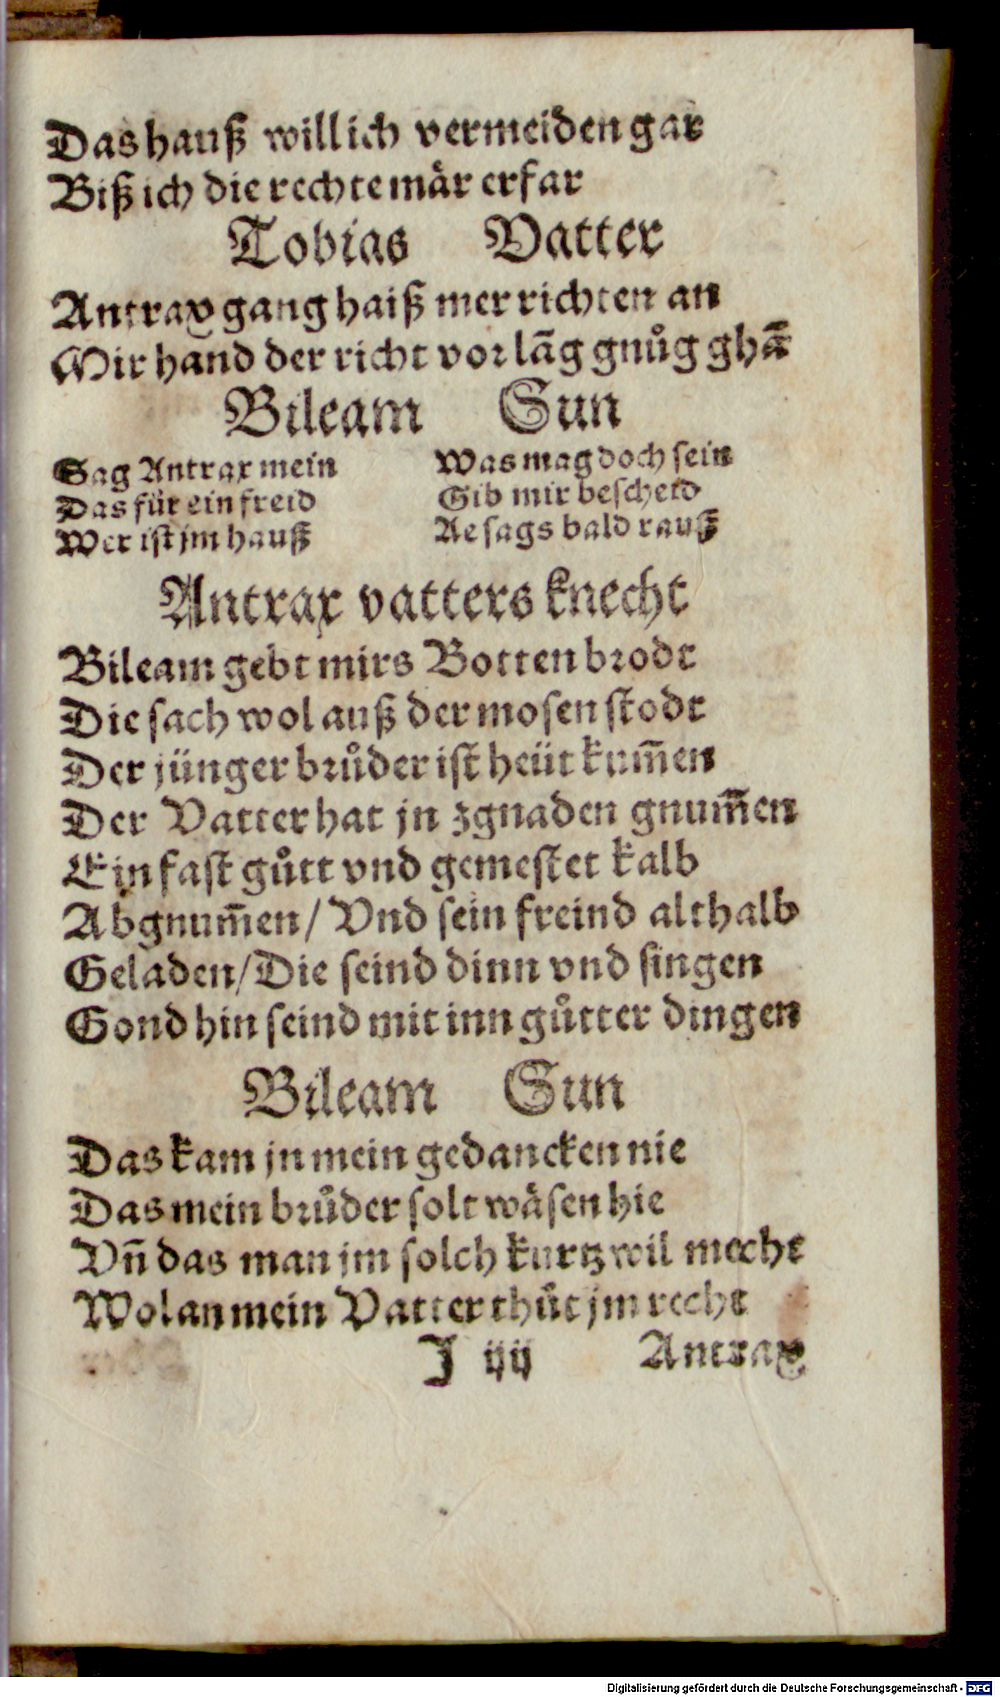 Das hauß will ich vermeiden gar
Biß ich die rechte mär erfar
Tobias Vatter
Antrax gang haiß mer richten an
Wir hand der richt vor lāg gnůg ghā
Bileam Sun
Sag Antrax mein Was mag doch sein
Das für ein freid Gib mir bescheid
Wer ist jm hauß Ae sags bald rauß
Antrax vatters knecht
Bileam gebt mirs Botten brodt
Die sach wol auß der mosen stodt
Der jünger brůder ist heüt kum̄en
Der Vatter hat jn zgnaden gnum̄en
Ein fast gůtt vnd gemestet kalb
Abgnum̄en/ Vnd sein freind althalb
Geladen/ Die seind dinn vnd singen
Gond hin seind mit inn gůtter dingen
Bileam Sun
Das kam jn mein gedancken nie
Das mein brůder solt wäsen hie
Vn̄ das man jm solch kurtzwil mecht
Wolan mein Vatter thůt jm recht
J iij Antrax
Digitalisierung gefördert durch die Deutsche Forschungsgemeinschaft - DFG